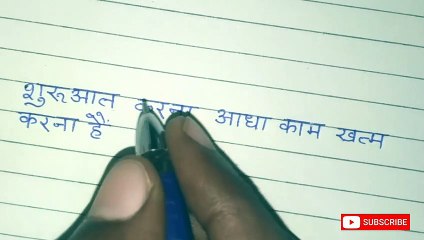 शुरूआत करना आधा काम खत्म
करना हैं
SUBSCRIBE